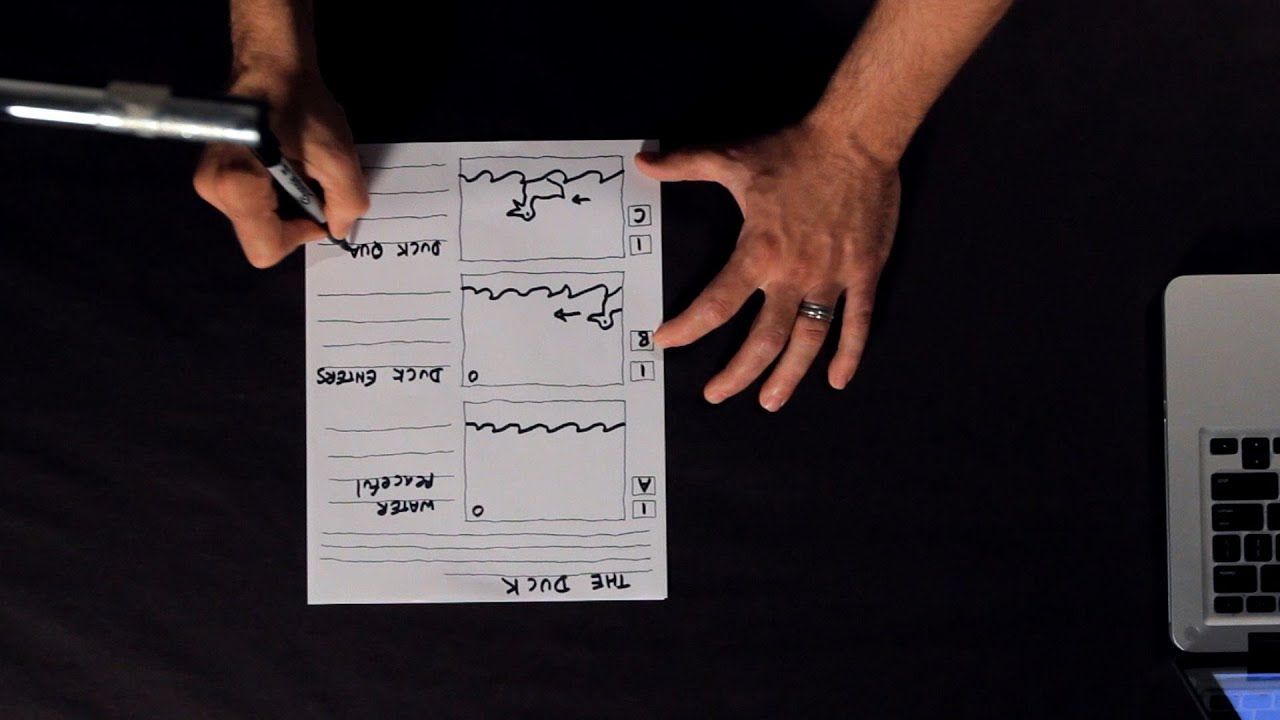 THE DUCK
1
A
WATER
Peaceful
1
B
DUCK ENTERS
1
C
DUCK QUA